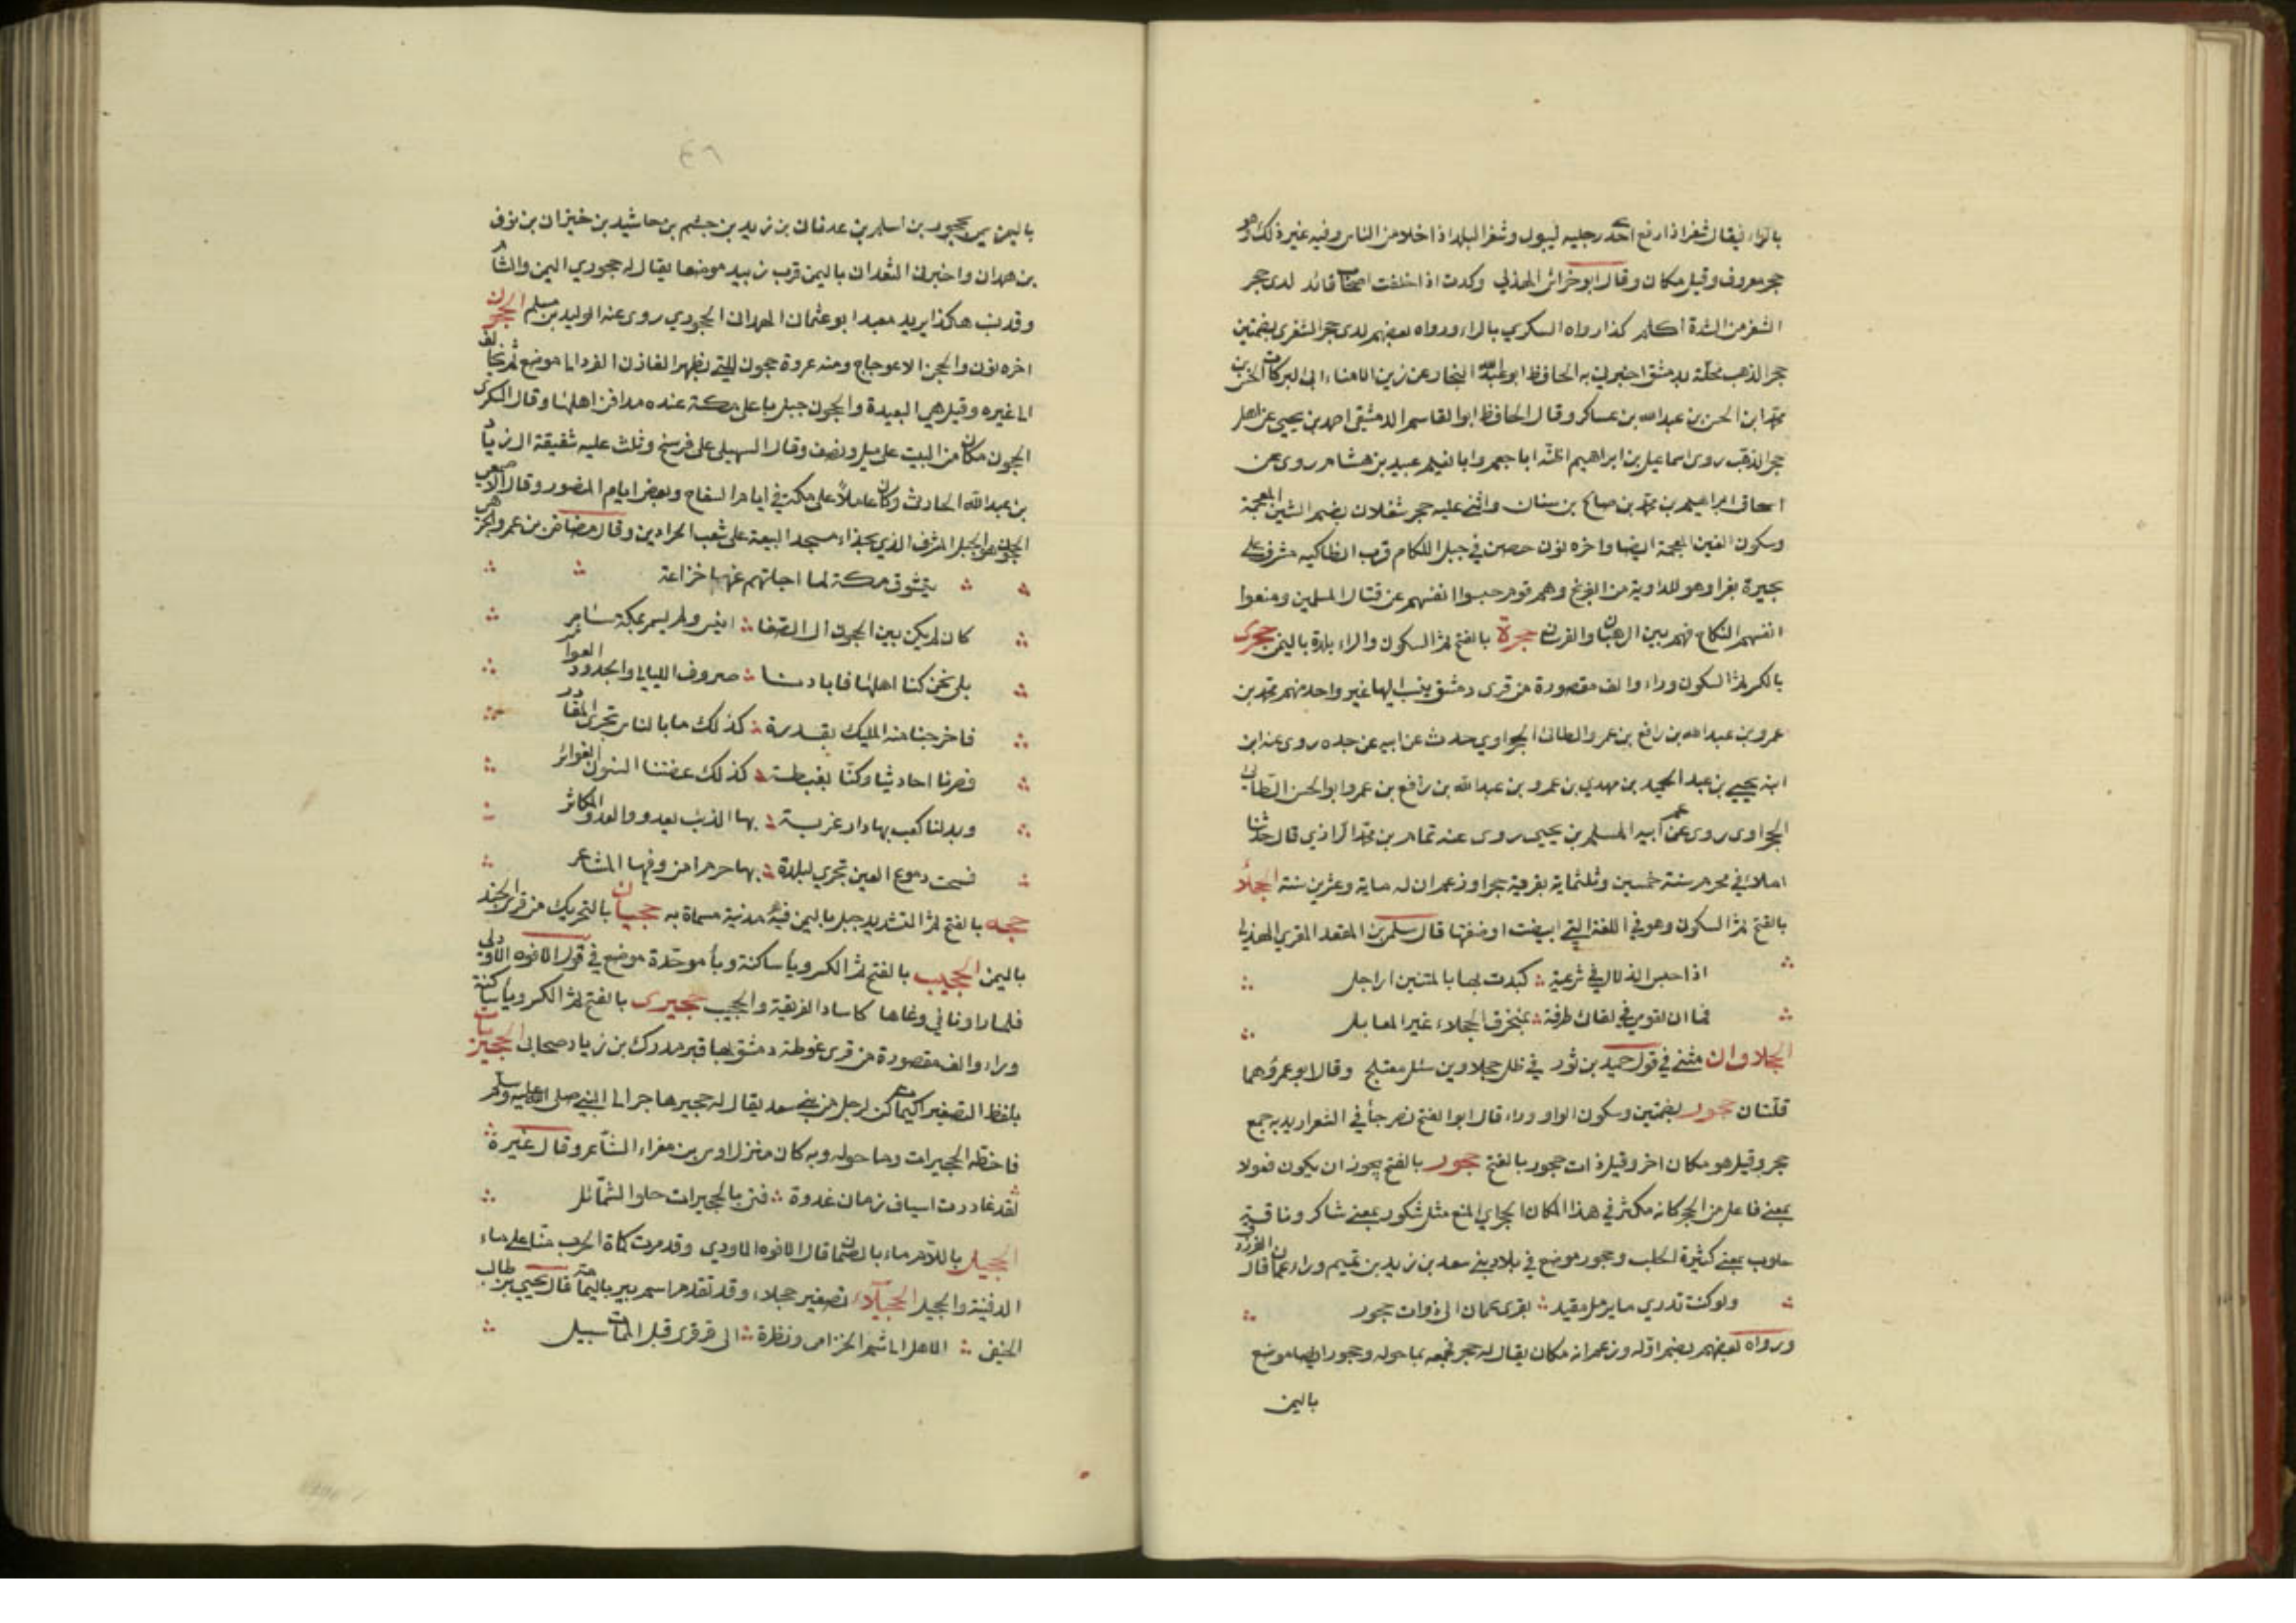 بالراء فيقال شغرا ذا رفع احد رجليه ليبول وشغر البلد اذا خلا من الناس وفيه غير ذلك وهو
حجر معروف وقيل مكان وقال ابو خراش الهذلي وكدت اذا خلفت اصحابي فائد لدى حجر
الشغر من الشدة اكلم كذا رواه السكري بالراء ورواه بعضهم لدى حجر الشغرى بضمتين
حجر الذهب محلة بدمشق اخبرني به الحافظ ابو عبد الله النجار عن زين الامناء ابي البركات الحسن بن
محمد ابن الحسن بن عبد الله بن عساكر وقال الحافظ ابو القاسم الدمشقي احمد بن يحيى من اهل
حجر الذهب روى اسماعيل بن ابراهيم اظنه ابا جعمر وابا نعيم عبيد بن هشام روى عن
اسحاق ابراهيم بن محمد بن صالح بن سنان واثنى عليه حجر شغلان بضم الشين المعجمة
وسكون الغين المعجمة ايضا واخره نون حصن في جبل اللكام قرب انطاكيه مشرف على
بحيرة بغرا وهو للداوية من الفرنج وهم قوم حبسوا انفسهم عن قتال المسلمين ومنعوا
انفسهم النكاح فهم بين الرهبان والفرسان حجرة بالفتح ثم السكون والراء بلدة باليمن حجرى
بالكسر ثم السكون وراء والف مقصورة من قرى دمشق ينسب اليها غير واحد منهم محمد بن
عمرو بن عبد الله بن رافع بن عمرو الطائي الحجراوي حدث عن ابيه عن جده روى عنه ابن
ابنه يحيى بن عبد الحميد بن مهدي بن عمرو بن عبد الله بن رافع بن عمرو ابو الحسن الطائي
الحجراوى روى عن عم ابيه المسلم بن يحيى روى عنه تمام بن محمد الرازي قال حدثنا
املاء في محرم سنة خمسين وثلثماية بقرية حجرا وزعم ان له ماية وعشرين سنة الحجلاء
بالفتح ثم السكون وهو في اللغة التي ابيضت اوضفتها قال سلمى بن المقعد القري الهذلي
اذا حبس الذلال في شرعية كبدت بها بالمتنين اراجل
فما ان لقومي في لقائي طرفة بمنخرق الحجلاء غير المعابل
الحجلاوان مثنى في قول حميد بن ثور في ظل حجلاوين سئل معتلج وقال ابو عمرو هما
قلتان حجور بضمتين وسكون الواو وراء قال ابو الفتح نصر جأ في الشعر اريد به جمع
حجر وقيل هو مكان اخر وقيل ذات حجور بالفتح حجور بالفتح يجوز ان يكون فعولا
بمعنى فاعل من الحجر كانه مكثر في هذا المكان الحجر اي المنع مثل شكور بمعنى شاكر وناقة
حلوب بمعنى كثيرة الحلب وحجور موضع في بلاد بني سعد بن زيد بن تميم وراء عمان قال الفرزدق
ولو كنت تدري ما برمل مقيد بقرى عمان الى ذوات حجور
ورواه بعضهم بضم اوله وزعم انه مكان يقال له حجر فجمعه بما حوله وحجور ايضا موضع
باليمن
٤٦
باليمن سمي بحجور بن اسلم بن عدفان بن زيد بن جشم بن حاشيد بن خيزان بن نوف
بن همدان واخبرني الثعد ان باليمن قرب زبيد موضعا يقال له حجوري اليمن والشام
وقد نسب هكذا يريد معبد ابو عثمان الهمداني الحجوري روى عنه الوليد بن مسلم الحجون
اخره نون والحجن الاعوجاج ومنه غروة حجون للتي يظهر الغازي الغزو الى موضع ثم يخالف
الى غيره وقيل هي البعيدة والحجون جبل باعلى مكة عنده مدافن اهلها وقال السكرى
الحجون مكان من البيت على ميل ونصف وقال السهيلي على فرسخ وثلث عليه شقيقة ال زياد
بن عبد الله الحارث وكان عاملا على مكة في ايام السفاح وبعض ايام المنصور وقال الاصمعي
الحجون هو الجبل المشرف الذي بحذاء مسجد البيعة على شعب الحرادين وقال مضاض بن عمرو الجرهمي
يتشوق مكة لما اجلتهم عنها خزاعة
كان لم يكن بين الحجون الى الصفا انيس ولم يسمر بمكة سامر
بلى نحن كنا اهلها فابادنا صروف الليالي والجدود العواثر
فاخرجنا منها المليك بقدرة كذلك ما بالناس تجرى المقادر
فصرنا احاديثا وكنا بغبطة كذلك عضتنا السنون الغوابر
وبدلنا كعب بها دار غربة بها الذئب يعدو والعدو المكاثر
فسحت دموع العين تجري لبلدة بها حرم امن وفيها المشاعر
حجه بالفتح ثم التشديد جبل باليمن فيه مدنية مسماة به حجيان بالتحريك من قرى الجند
باليمن الحجيب بالفتح ثم الكسر ويأ ساكنة وبأ موحدة موضع في قول الافوه الاودي
فلما ان راونا في وغاها كاساد الغريقة والحجيب حجيرى بالفتح ثم الكسر ويأ ساكنة
وراء والف مقصورة من قرى غوطة دمشق بها قبر مدرك بن زياد صحابى الحجيريات
بلفظ التصغير اكيمات كن لرجل من بني سعد يقال له حجير هاجر الى النبي صلى الله عليه وسلم
فاخطه الحجيرات وما حوله وبه كان منزل اوس بن مغراء الشاعر وقال غيره
لقد غادرت اسياف زمان غدوة فتى بالحجيرات حلو الشمائل
الحجيل باللام ماء بالصمان قال الافوه الاودي وقد مرت كماة الحرب منا على ماء
الدفينة والحجيل الحجيلاء تصغير حجلاء وقد تقدم اسم بير باليمامة قال يحيى بن طالب
الحنفي الا هل الى شم الخزامى ونظرة الى قرقرى قبل الممات سبيل